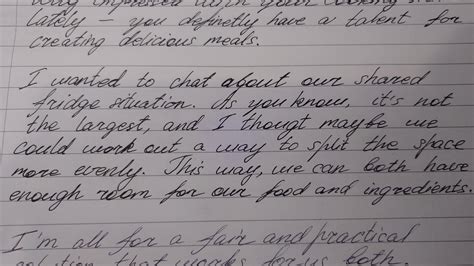 impressed with your cooking
lately – you definetly have a talent for
creating delicious meals.
I wanted to chat about our shared
fridge situation. As you know, it's not
the largest, and I thougt maybe we
could work out a way to split the space
more evenly. This way, we can both have
enough room for our food and ingredients.
I'm all for a fair and practical
solution that works for us both.